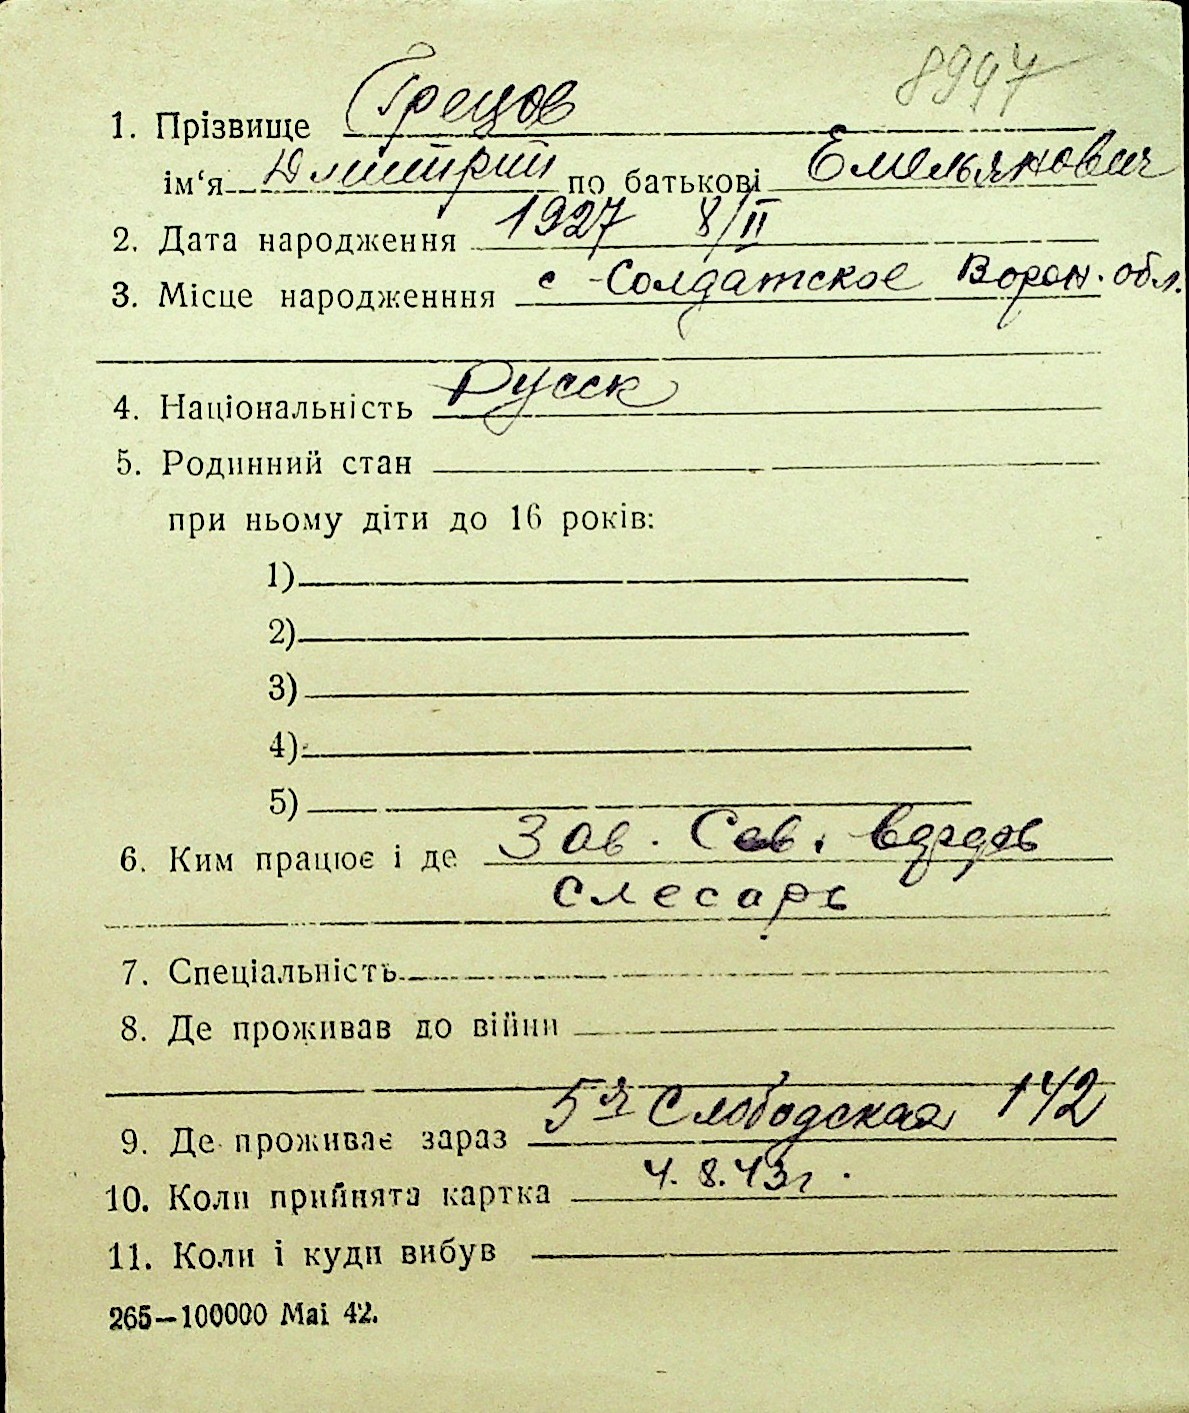 8997
1. Прізвище Грецов
ім‘я Дмитрий по батькові Емельянович
2. Дата народження 1927 8/II
3. Місце народженння с Солдатское Ворон. обл.
4. Національність Русск
5. Родинний стан
при ньому діти до 16 років:
1)
2)
3)
4)
5)
6. Ким працює і де Зав. Сев.
Слесарь
7. Спеціальність
8. Де проживав до війни
9. Де проживає зараз 5я Слободская 142
10. Коли прийнята картка 4. 8. 43г.
11. Коли і куди вибув
265—100000 Mai 42.